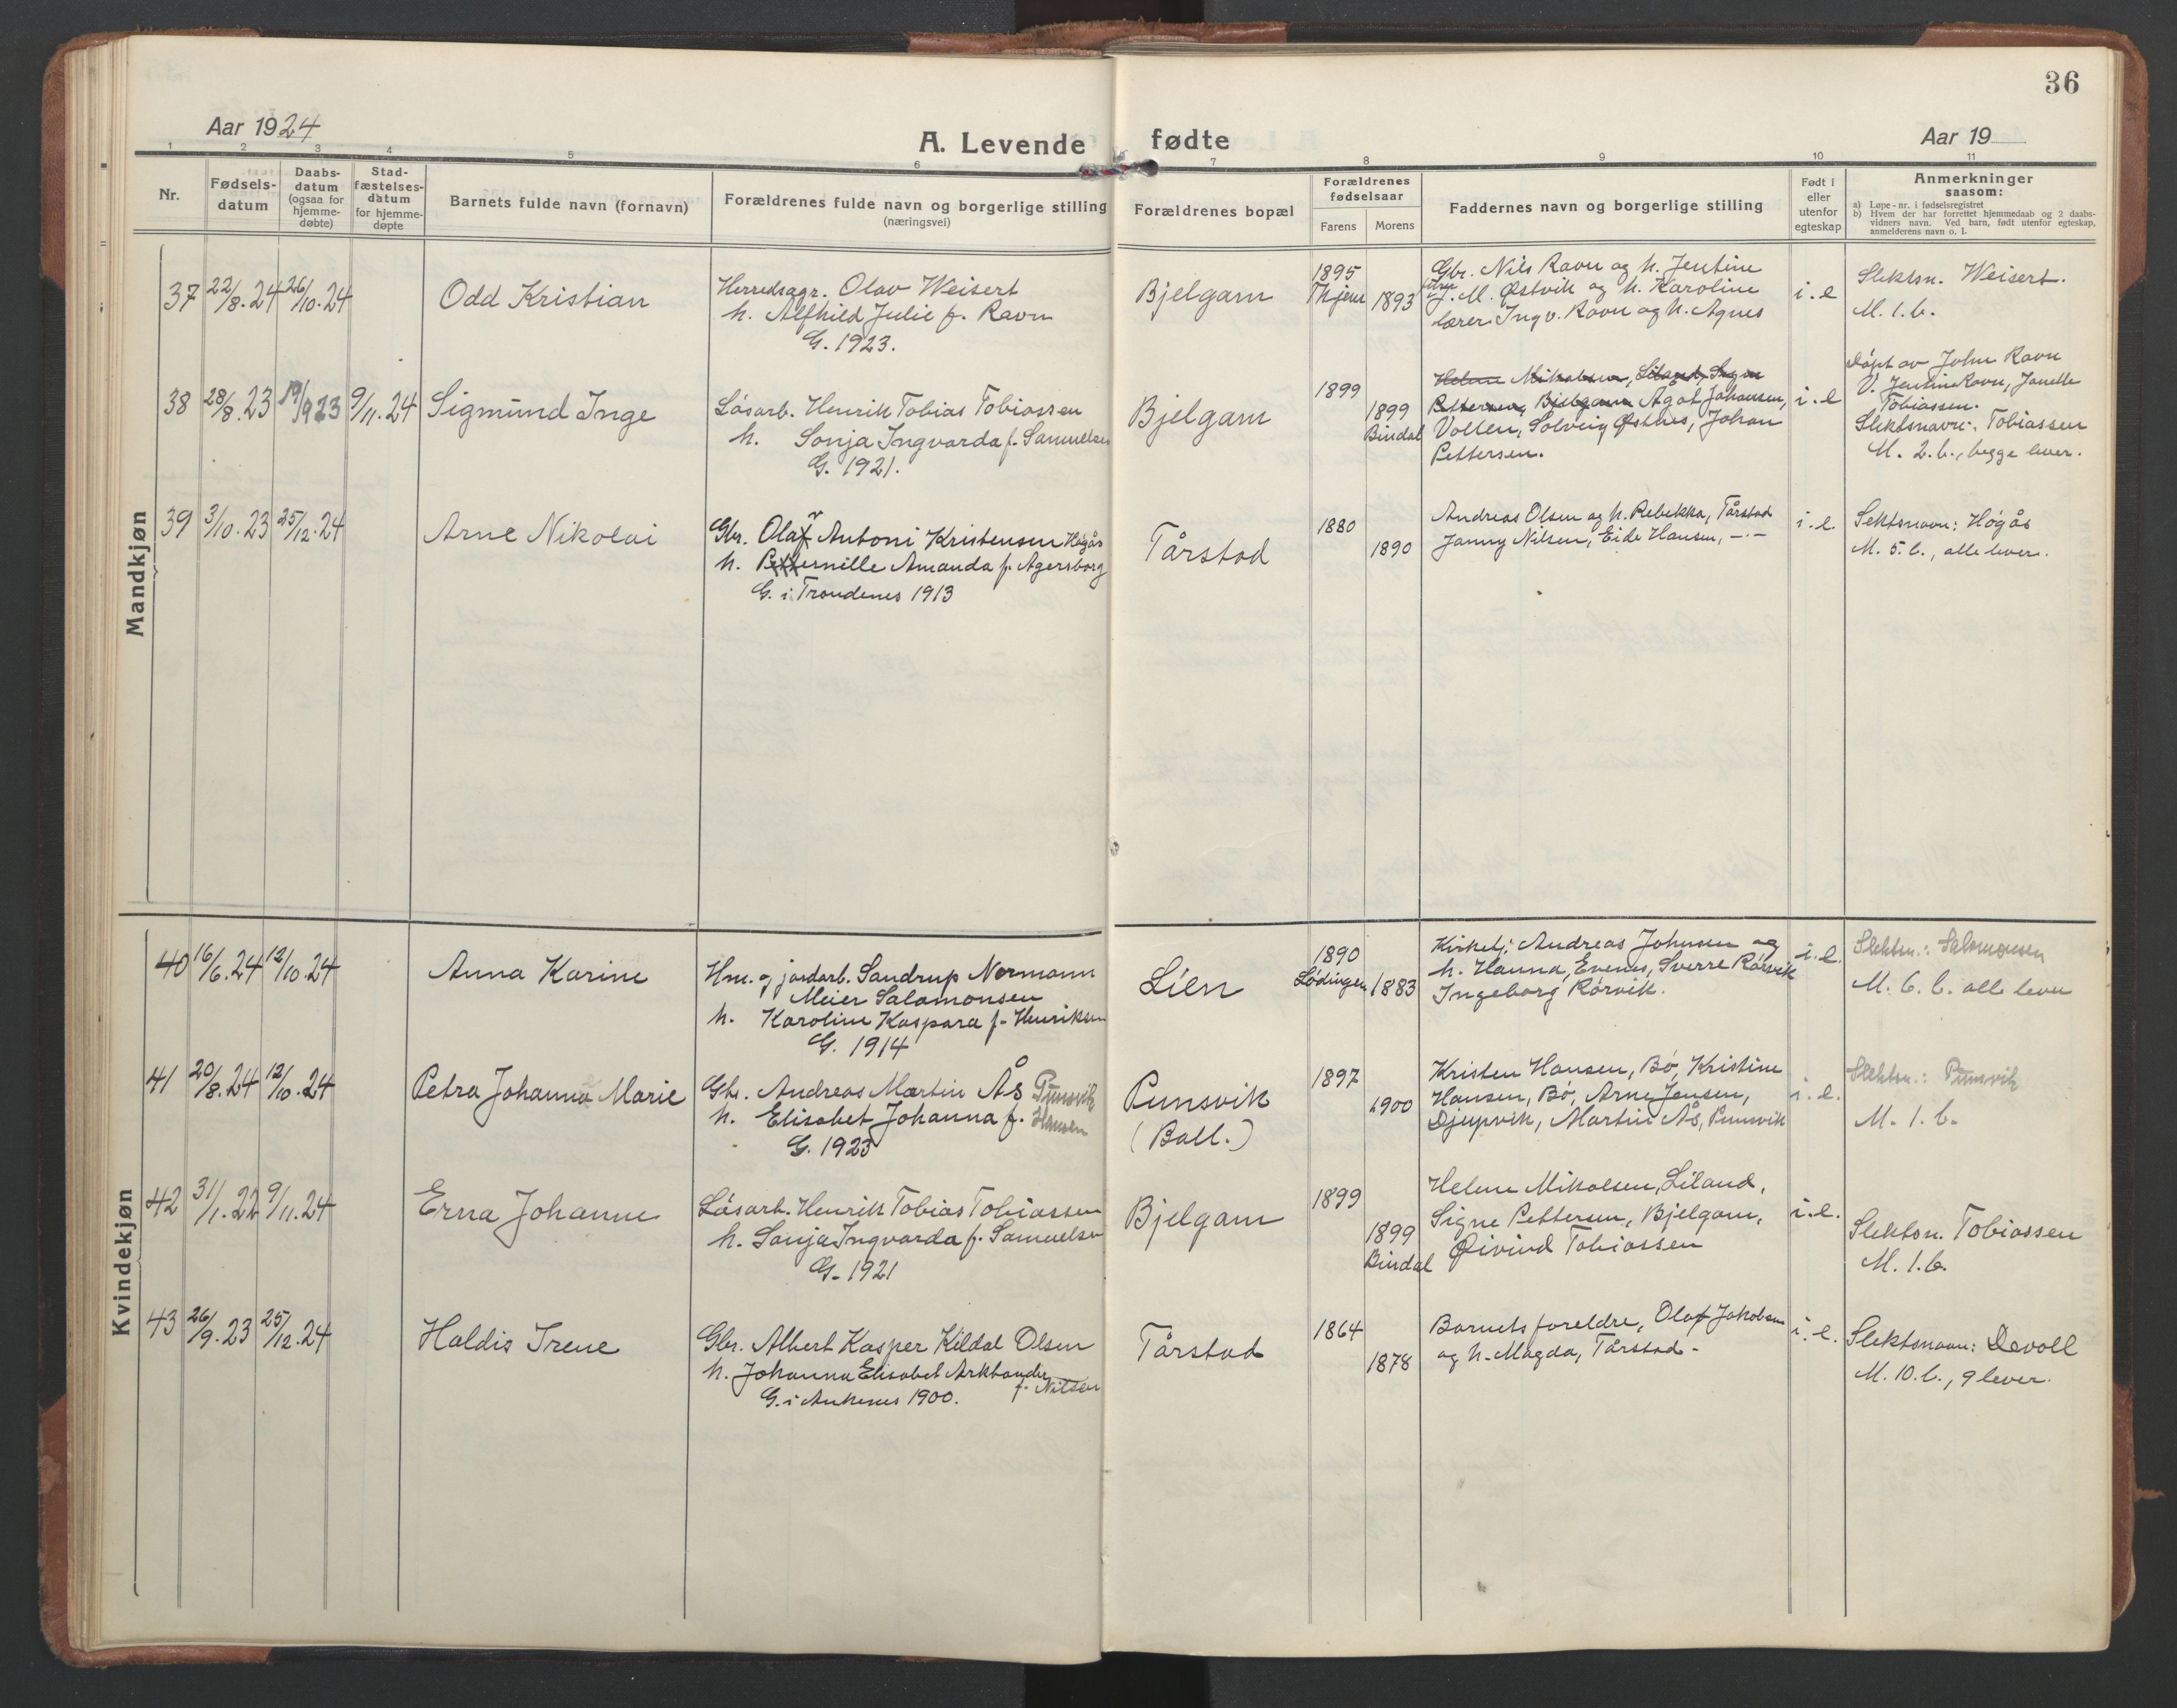 36
Aar 1924
A. Levende fødte
Aar 19
1 2 3 4 5 6 7 8 9 10 11
Nr.
Fødsels-
datum
Daabs-
datum
(ogsaa for
hjemme-
døbte)
Stad-
fæstelses-
datum
for hjemme-
døpte
Barnets fulde navn (fornavn)
Forældrenes fulde navn og borgerlige stilling
(næringsvei)
Forældrenes bopæl
Forældrenes
fødselsaar
Farens Morens
Faddernes navn og borgerlige stilling
Født i
eller
utenfor
egteskap
Anmerkninger
saasom:
a) Løpe-nr. i fødselsregistret
b) Hvem der har forrettet hjemmedaab og 2 daabs-
vidners navn. Ved barn, født utenfor egteskap,
anmelderens navn o. l.
Mandkjøn
37 22/8.24 26/10.24 Odd Kristian
Herredsagr. Olav Weisert
h. Alfhild Julie f. Ravn
G. 1923.
Bjelgam
1895
1893
Gbr. Nils Ravn og h. Jentine
J. M. Østvik og h. Karoline
lærer Ingv. Ravn og h. Agnes
i.e
Slektsn. Weisert.
M. 1. b.
38 28/8.23 19/9 23 9/11.24 Sigmund Inge
Løsarb. Henrik Tobias Tobiassen
h. Sonja Ingvarda f. Samuelsen
G. 1921.
Bjelgam
1899
1899
Bindal
Helene Mikalsen, Liland, Signe
Pettersen, Bjelgam Ågot Johansen,
Vollen, Solveig Østnes, Johan
Pettersen.
i.e
Døpt av John Ravn
V. Jentine Ravn, Janelle
Tobiassen.
Slektsnavn: Tobiassen
M. 2. b., begge lever.
39 3/10.23 25/12.24 Arne Nikolai
Gbr. Olav Antoni Kristensen Høgås
h. Petternille Amanda f. Agersborg
G. i Trondenes 1913
Tårstad
1880
1890
Andreas Olsen og h. Rebekka, Tårstad
Janny Nilsen, Eide Hansen, -.-
i.e.
Sektsnavn: Høgås
M. 5. b., alle lever.
Kvindekjøn
40 16/6.24 12/10.24 Anna Karine
Hm. og jordarb. Sandrup Normann
Meier Salamonsen
h. Karoline Kaspara f. Henriksen
G. 1914
Lien
1890
Lødingen
1883
Kirketj. Andreas Johnsen og
h. Hanna, Evenes, Sverre Rørvik
Ingeborg Rørvik.
i.e.
Slektsn.: Salamonsen
M. 6. b. alle lever
41 20/8.24 12/10.24 Petra Johanna Marie
Gbr. Andreas Martin Ås Punsvik
h. Elisabet Johanna f. Hansen
G. 1923
Punsvik
(Ball.)
1897
1900
Kristen Hansen, Bø, Kristine
Hansen, Bø, Arne Jensen,
Djupvik, Martin Ås, Punsvik
i.e.
Slektsn.: Punsvik
M. 1. b.
42 31/1.22 9/11.24 Erna Johanne
Løsarb. Henrik Tobias Tobiassen
h. Sonja Ingvarda f. Samuelsen
G. 1921
Bjelgam
1899
1899
Bindal
Helene Mikalsen, Liland,
Signe Pettersen, Bjelgam,
Øivind Tobiassen
i.e.
Slektsn. Tobiassen
M. 1. b.
43 26/9.23 25/12.24 Haldis Irene
Gbr. Albert Kasper Kildal Olsen
h. Johanna Elisabet Arktander
f. Nilsen
G. i Ankenes 1900.
Tårstad
1864
1878
Barnets foreldre, Olaf Jakobsen
og h. Magda, Tårstad.
i.e.
Slektsnavn: Devoll
M. 10. b., 9 lever.